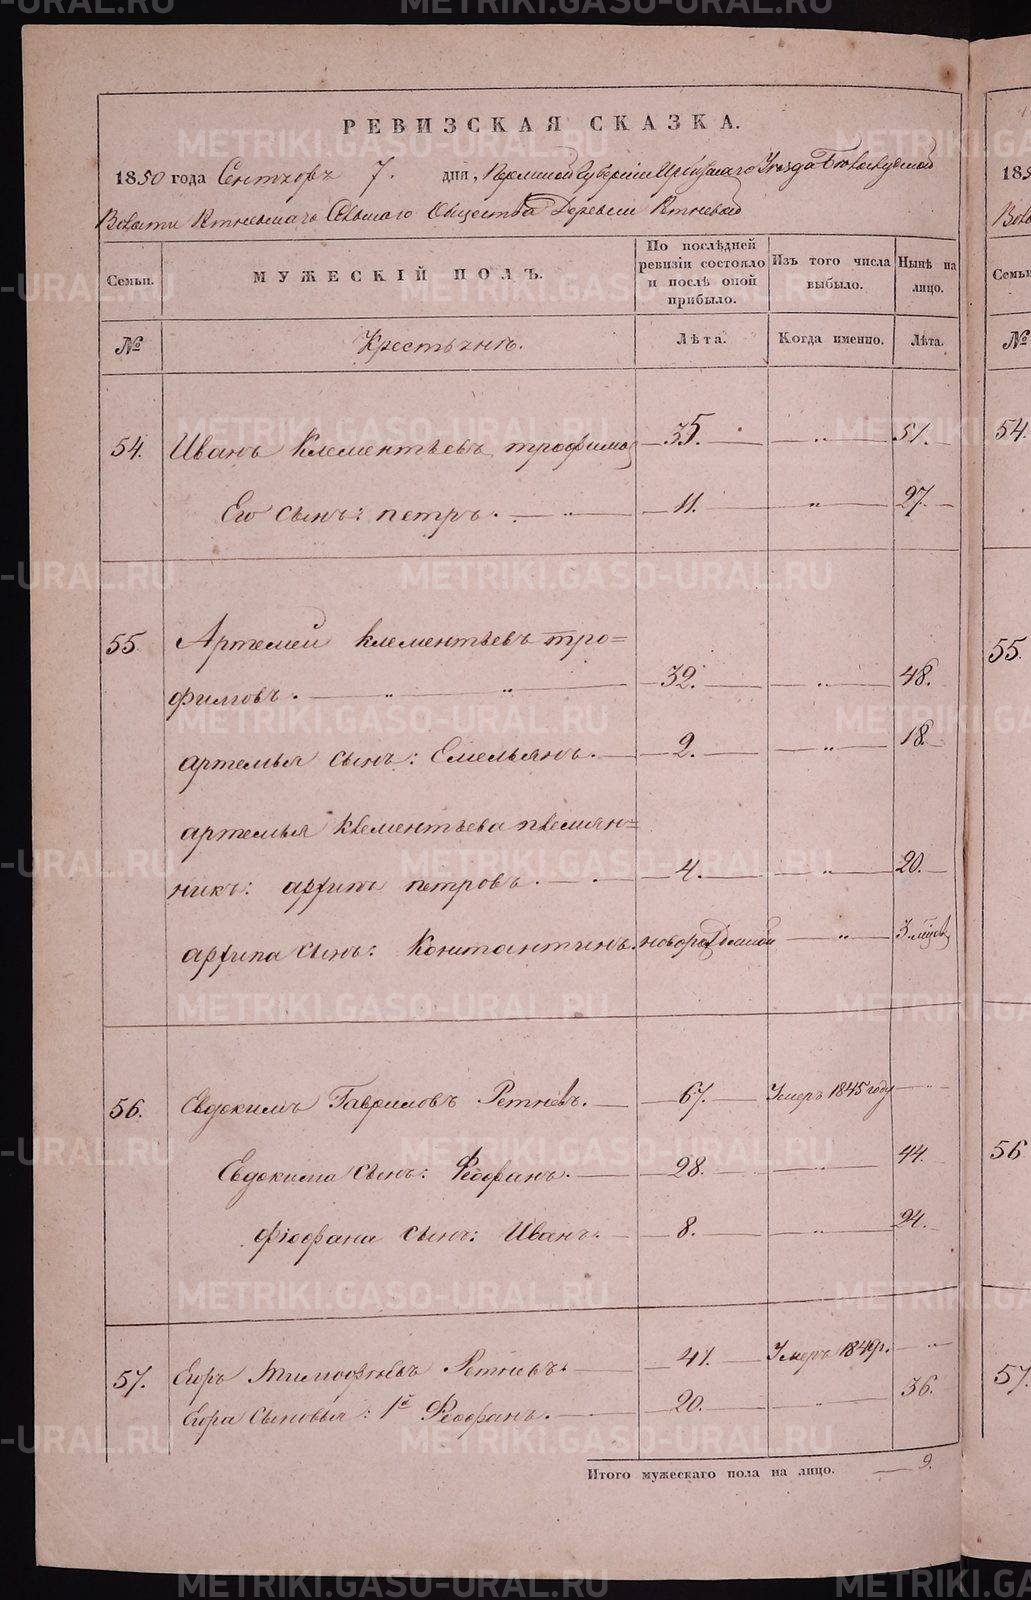 METRIKI.GASO-URAL.RU
РЕВИЗСКАЯ СКАЗКА.
1850 года Сентября 7. дня, Пермской Губернии Ирбитскаго Уезда
Волости Сельскаго Общества Деревни Ретневой
Семьи.
МУЖЕСКІЙ ПОЛЪ.
По послѣдней ревизіи состояло и послѣ оной прибыло.
Изъ того числа выбыло.
Нынѣ на лицо.
№
Крестьянъ.
Лѣта.
Когда именно.
Лѣта.
54. Иванъ Клементьевъ трофимов 35. „ 51.
Его сынъ: петръ. „ 11. „ 27.
55. Артемей клементьевъ тро=
фимовъ. „ „ 32. „ 48.
артемья сынъ: Емельянъ. 2. „ 18.
артемья клементьева племян=
никъ: архипъ петровъ. 4. „ 20.
архипа сынъ: Константинъ. новорожденной „ 3 мѣсяц
56. Евдокимъ Гавриловъ Ретневъ. 67. Умеръ 1845 году „
Евдокима сынъ: Феофанъ. 28. „ 44.
фіофана сынъ: Иванъ. 8. „ 24.
57. Егоръ Тимофѣевъ Ретневъ. 41. Умеръ 1849 г. „
Егора сыновья: 1й Феофанъ. 20. „ 36.
Итого мужескаго пола на лицо. 9.
185
Воло
Семьи
№
54.
55.
56
57.